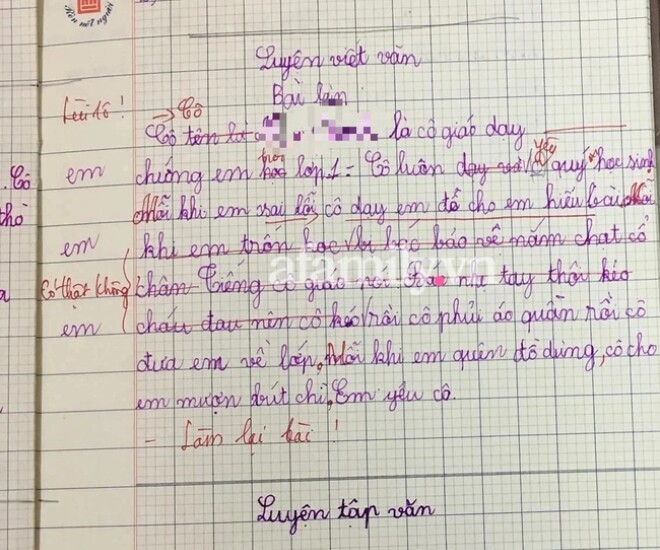 Rèn nét người
Luyện viết văn
Bài làm
Lùi 1 ô! → Cô
Cô tên là là cô giáo dạy
.Cô em chúng em học trong lớp 1 = Cô luôn dạy yêu quý học sinh
thò Mỗi khi em sai lỗi cô dạy em để cho em hiểu bài. Mỗi
em khi em trốn học bảo vệ nắm chat cổ
a Có thật không chân Tiếng cô giáo tay thôi kéo
em cháu đau nên cô kéo rồi cô phủi áo quần rồi cô
đưa em về lớp, Mỗi khi em quên đồ dùng, cô cho
em mượn bút chì, Em yêu cô.
- Làm lại bài!
afamily.vn
Luyện tập văn